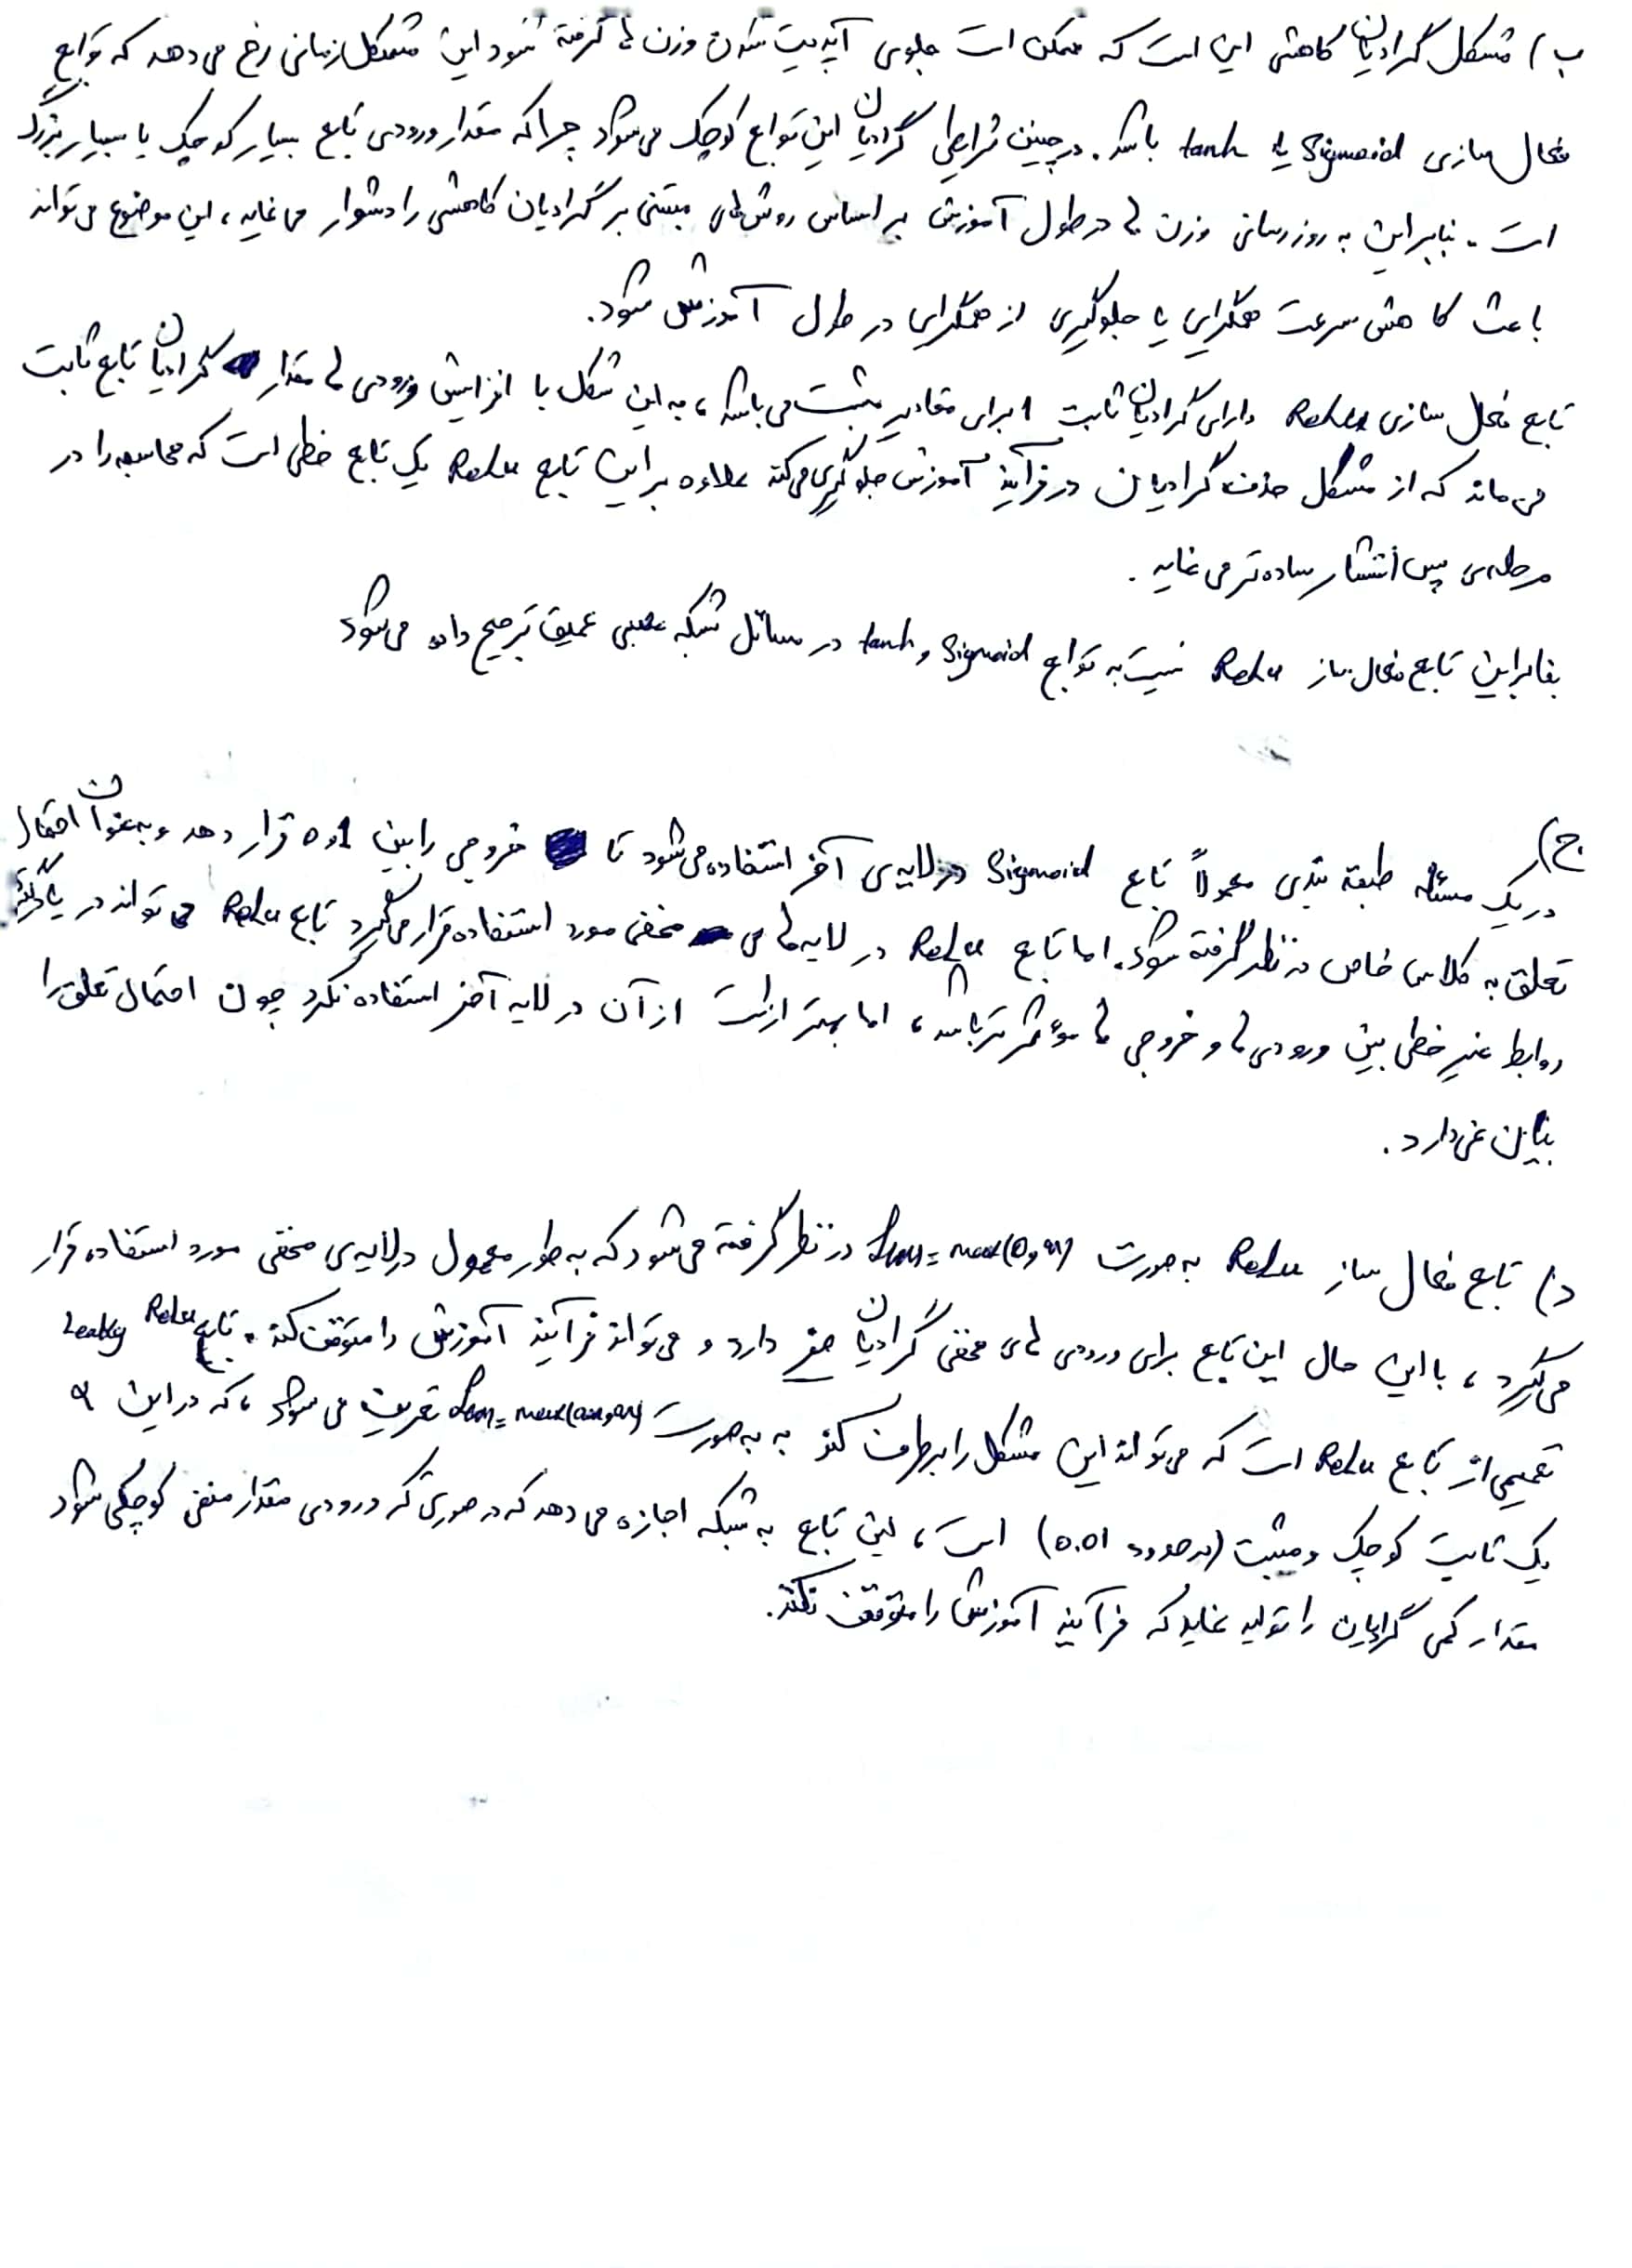 ب) مشکل گرادیان کاهشی این است که ممکن است جلوی آپدیت شدن وزن ها گرفته شود این مشکل زمانی رخ می دهد که توابع
فعال سازی Sigmoid یا tanh باشد. در چنین شرایطی گرادیان این توابع کوچک می شود چرا که مقدار ورودی تابع بسیار کوچک یا بسیار بزرگ
است. بنابراین به روز رسانی وزن ها در طول آموزش بر اساس روش های مبتنی بر گرادیان کاهشی را دشوار می نماید، این موضوع می تواند
باعث کاهش سرعت همگرایی یا جلوگیری از همگرایی در طول آموزش شود.
تابع فعال سازی Relu دارای گرادیان ثابت 1 برای مقادیر مثبت می باشد، به این شکل با افزایش ورودی ها مقدار گرادیان تابع ثابت
می ماند که از مشکل حذف گرادیان در فرآیند آموزش جلوگیری می کند علاوه بر این تابع Relu یک تابع خطی است که محاسبه را در
مرحله ی پس انتشار ساده تر می نماید.
بنابراین تابع فعال ساز Relu نسبت به توابع Sigmoid و tanh در مسائل شبکه عصبی عمیق ترجیح داده می شود
ج)
در یک مسئله طبقه بندی معمولاً تابع Sigmoid در لایه ی آخر استفاده می شود تا خروجی را بین 1 و 0 قرار دهد و به عنوان احتمال
تعلق به کلاس خاص در نظر گرفته شود. اما تابع Relu در لایه های مخفی مورد استفاده قرار می گیرد تابع Relu می تواند در یادگیری
روابط غیر خطی بین ورودی ها و خروجی ها موثر تر باشد، اما بهتر است از آن در لایه آخر استفاده نکرد چون احتمال تعلق را
بیان نمی دارد.
د) تابع فعال ساز Relu به صورت f(x) = max(0,x) در نظر گرفته می شود که به طور معمول در لایه ی مخفی مورد استفاده قرار
می گیرد، با این حال این تابع برای ورودی های مخفی گرادیان صفر دارد و می تواند فرآیند آموزش را متوقف کند. تابع Leaky Relu
تعمیمی از تابع Relu است که می تواند این مشکل را برطرف کند به به صورت f(x) = max(ax,x) تعریف می شود، که در این a
یک ثابت کوچک و مثبت (در حدود 0.01) است، این تابع به شبکه اجازه می دهد که در صورتی که ورودی مقدار منفی کوچکی شود
مقدار کمی گرادیان را تولید نماید که فرآیند آموزش را متوقف نکند.